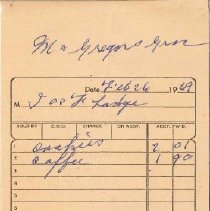 Mc Gregors Groc
Date Feb 26 1969
M I O O F Lodge
SOLD BY C.O.D. CHARGE ON ACCT. ACCT. FWD.
1 cookies 2 01
2 coffee 1 90
3
4
5
6
7
8